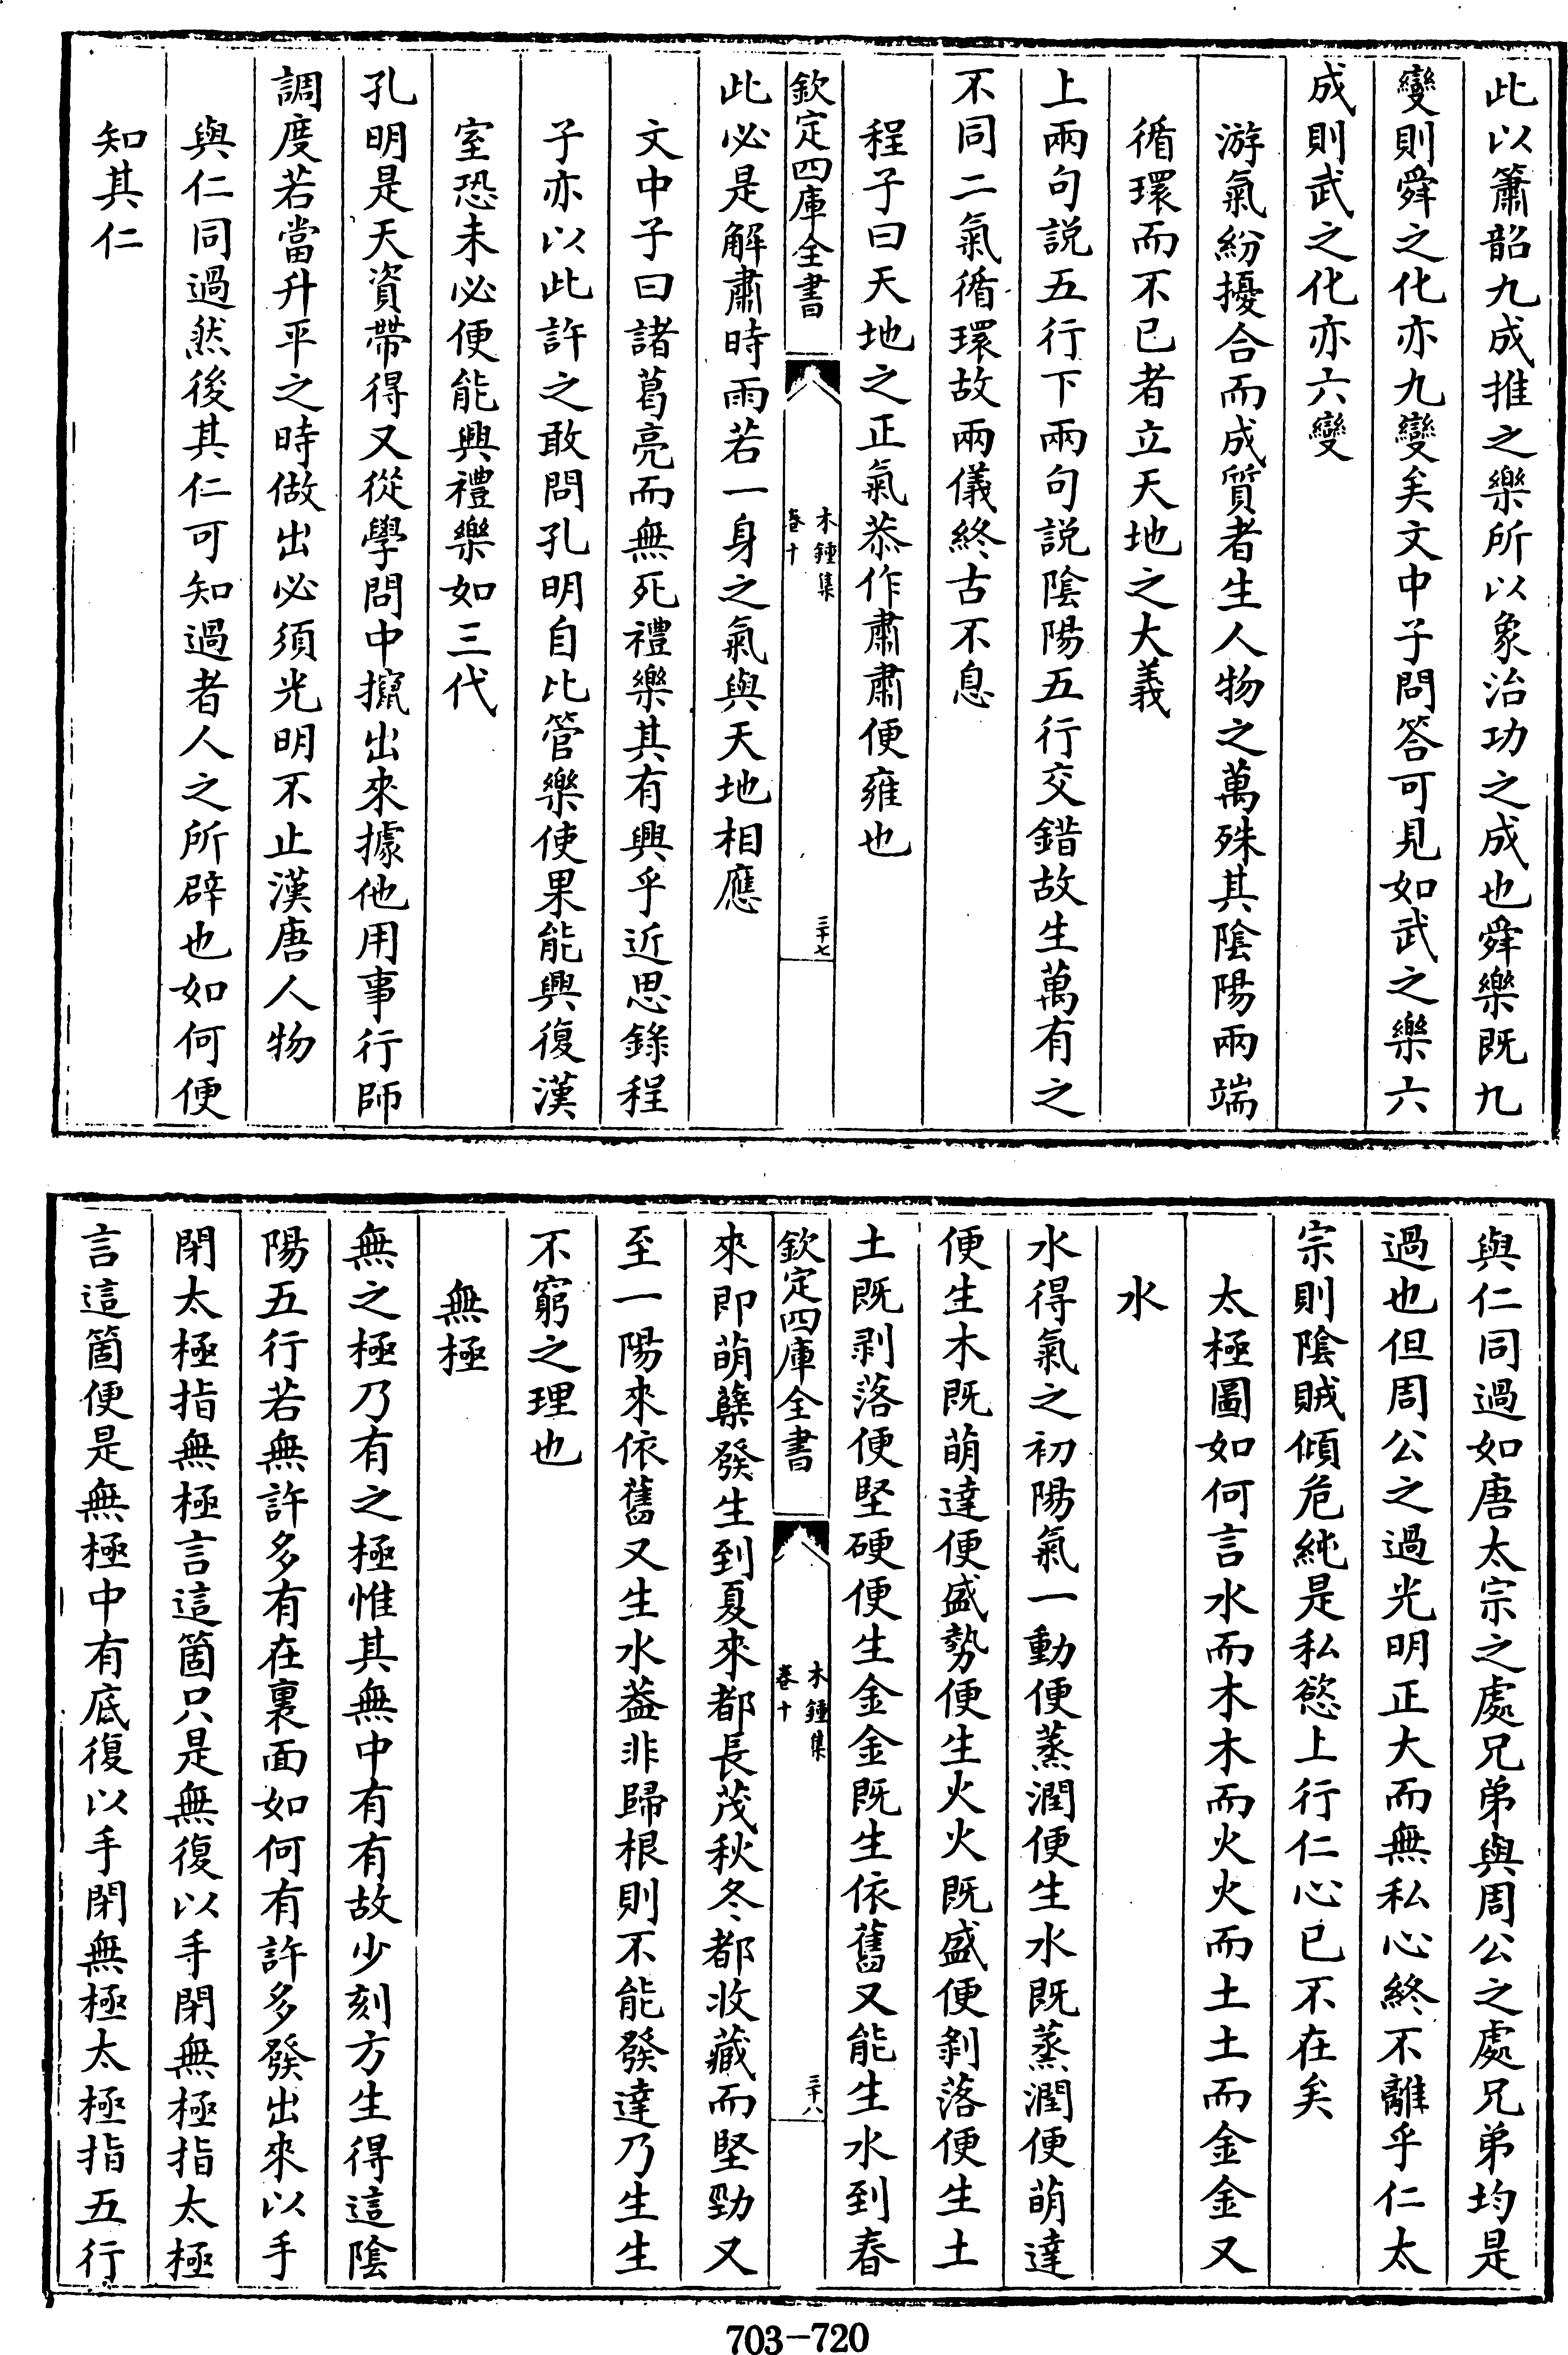 此以簫韶九成推之樂所以象治功之成也舜樂既九
變則舜之化亦九變矣文中子問答可見如武之樂六
成則武之化亦六變
游氣紛擾合而成質者生人物之萬殊其陰陽兩端
循環而不已者立天地之大義
上兩句説五行下兩句説陰陽五行交錯故生萬有之
不同二氣循環故兩儀終古不息
程子曰天地之正氣恭作肅肅便雍也
欽定四庫全書
木鍾集
卷十
三十七
此必是解肅時雨若一身之氣與天地相應
文中子曰諸葛亮而無死禮樂其有興乎近思錄程
子亦以此許之敢問孔明自比管樂使果能興復漢
室恐未必便能興禮樂如三代
孔明是天資帶得又從學問中攛出來據他用事行師
調度若當升平之時做出必須光明不止漢唐人物
與仁同過然後其仁可知過者人之所辟也如何便
知其仁
與仁同過如唐太宗之處兄弟與周公之處兄弟均是
過也但周公之過光明正大而無私心終不離乎仁太
宗則陰賊傾危純是私慾上行仁心已不在矣
太極圖如何言水而木木而火火而土土而金金又
水
水得氣之初陽氣一動便蒸潤便生水既蒸潤便萌達
便生木既萌達便盛勢便生火火既盛便剝落便生土
土既剥落便堅硬便生金金既生依舊又能生水到春
欽定四庫全書
木鍾集
卷十
三十八
來即萌蘖發生到夏來都長茂秋冬都收藏而堅勁又
至一陽來依舊又生水益非歸根則不能發達乃生生
不窮之理也
無極
無之極乃有之極惟其無中有有故少刻方生得這陰
陽五行若無許多有在裏面如何有許多發出來以手
閉太極指無極言這箇只是無復以手閉無極指太極
言這箇便是無極中有底復以手閉無極太極指五行
703-720